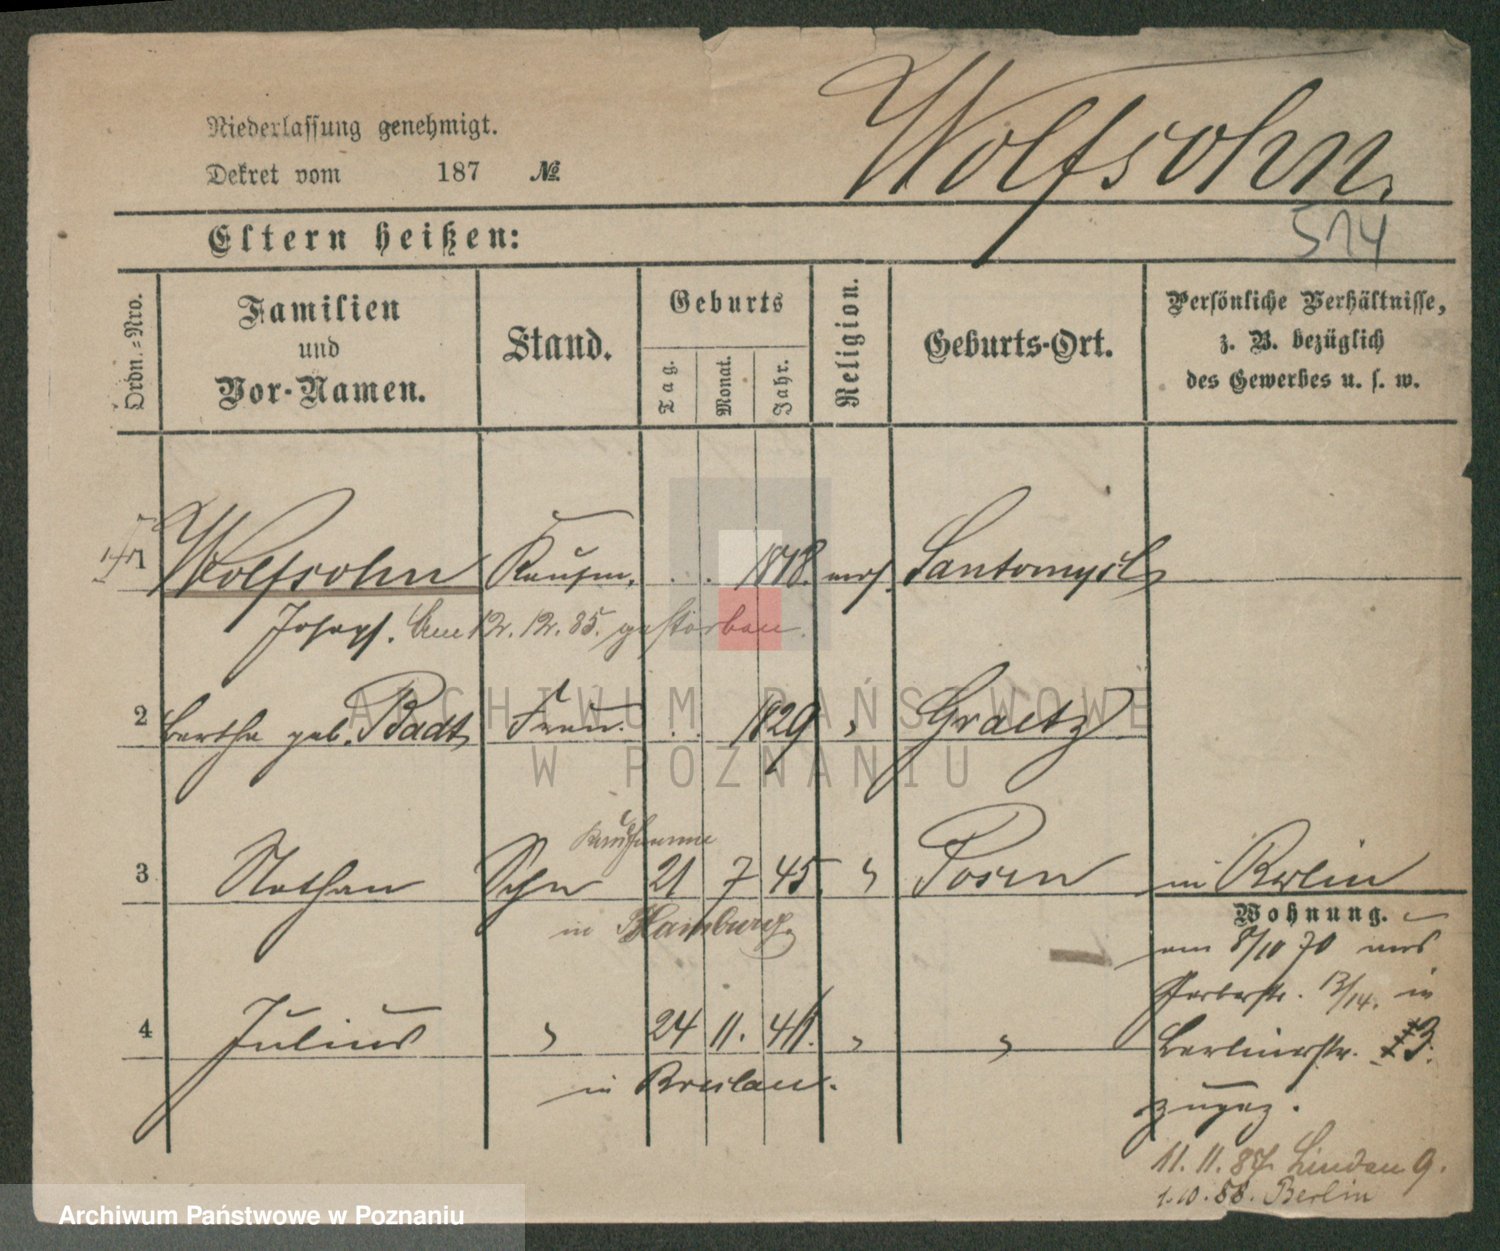 Wolfsohn.
Niederlassung genehmigt.
Dekret vom 187 №
514
Eltern heißen:
Ordn.=Nro.
Familien und Vor-Namen.
Stand.
Geburts
Tag.
Monat.
Jahr.
Religion.
Geburts-Ort.
Persönliche Verhältnisse,
z. B. bezüglich
des Gewerbes u. s. w.
1 Wolfsohn Kaufm. . . 1818. mos. Santomysl
Joseph. Am 12. 12. 85. gestorben.
2 Bertha geb. Badt Frau. . . 1829 " Graetz
Kaufmann
3 Nathan Sohn 21 7 45. " Posen in Berlin
in Hamburg.
Wohnung.
am 8/10 70 aus
Gerberstr. 13/14. in
4 Julius " 24 11. " "
Berlinerstr. 3.
in Breslau.
zugez.
11. 11. 87. Linden 9.
1.10.88. Berlin
ARCHIWUM PAŃSTWOWE
W POZNANIU
Archiwum Państwowe w Poznaniu